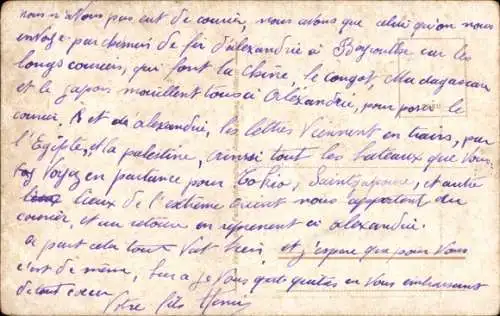 nous n'avons pas eut de courier, nous avons que celui qu'on nous
envoye par chemin de fer d'alexandrie à Beyrouth car les
longs courriers, qui font la chine, le congot, Madagascar
et le japons mouillent tous à Aléxandrie, pour poser le
courier. Et de aléxandrie, les lettres viennent en trains, par
l'Egypte, et la palestine, aussi tout les bateaux que vous
voyez en partance pour Tokio, Singapour, et autre
lieux de l'extrème orient nous apportent du
courier, et au retour en reprenent à aléxandrie.
a part cela tout vat bien, et j'espere que pour vous
c'est de même, je vous quitte en vous embrassant
de tout cœur
Votre fils Henri